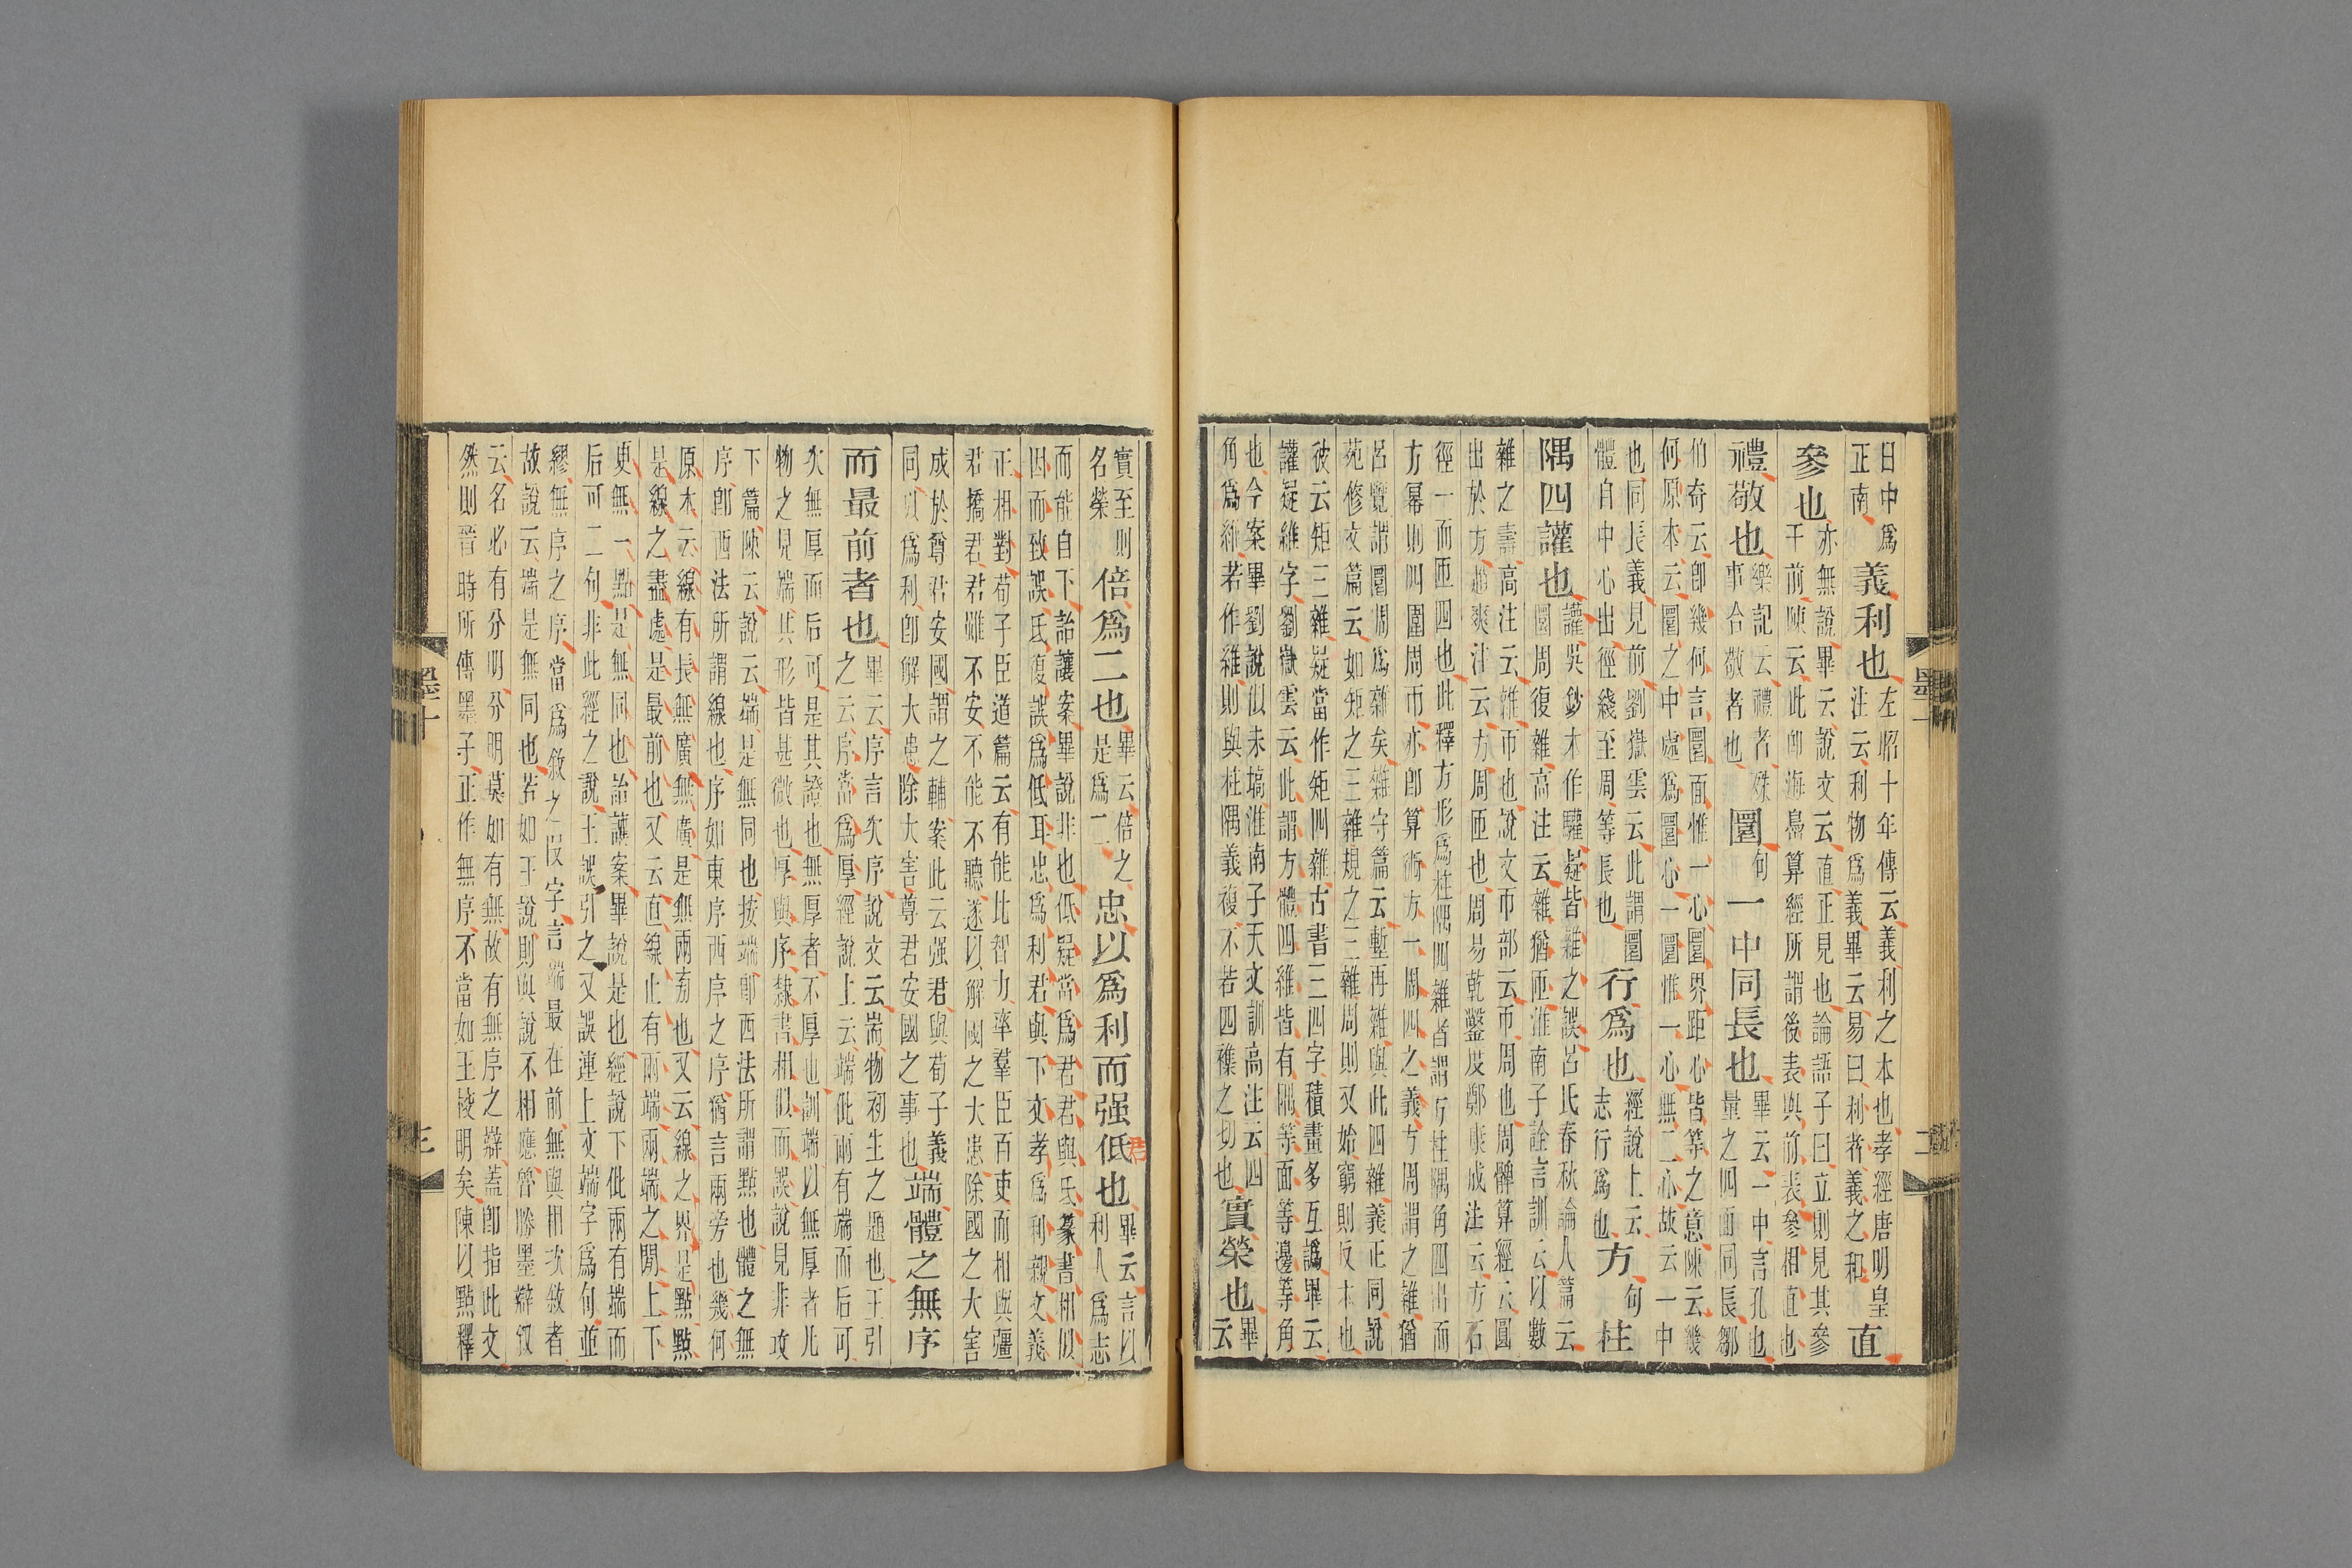 日中爲正南義利也左昭十年傳云義利之本也孝經唐明皇注云利物爲義畢云易曰利者義之和直
參也亦無說畢云說文云直正見也論語子曰立則見其參于前陳云此卽海島算經所謂後表與前表參相直也
禮敬也樂記云禮者殊事合敬者也圜句一中同長也畢云一中言孔也量之四面同長鄒
伯奇云卽幾何言圜面惟一心圜界距心皆等之意陳云幾何原本云圜之中處爲圜心一圜惟一心無二心故云一中
也同長義見前劉嶽雲云此謂圜體自中心出徑綫至周等長也行爲也經說上云志行爲也方句柱
隅四讙也讙吳鈔本作驩疑皆雜之誤呂氏春秋論人篇云圜周復雜高注云雜猶匝淮南子詮言訓云以數
雜之壽高注云雜帀也說文帀部云帀周也周髀算經云圓出於方趙爽注云方周匝也周易乾鑿度鄭康成注云方石
徑一而匝四也此釋方形爲柱隅四雜者謂方柱隅角四出而方冪則四圍周帀亦卽算術方一周四之義方周謂之雜猶
呂覽謂圜周爲雜矣雜守篇云塹再雜與此四雜義正同說苑修文篇云如矩之三雜規之三雜周則又始窮則反本也
彼云矩三雜疑當作矩四雜古書三四字積畫多互譌畢云讙疑維字劉嶽雲云此謂方體四維皆有隅等面等邊等角
也今案畢劉說似未塙淮南子天文訓高注云四角爲維若作維則與柱隅義複不若四襍之切也實榮也畢云
實至則名榮倍爲二也畢云倍之是爲二忠以爲利而强低也畢云言以利人爲志
而能自下詒讓案畢說非也低疑當爲君君與氐篆書相似因而致誤氐復誤爲低耳忠爲利君與下文孝爲利親文義
正相對荀子臣道篇云有能比智力率羣臣百吏而相與彊君撟君君雖不安不能不聽遂以解國之大患除國之大害
成於尊君安國謂之輔案此云强君與荀子義同以爲利卽解大患除大害尊君安國之事也端體之無序
而最前者也畢云序言次序說文云耑物初生之題也王引之云序當爲厚經說上云端仳兩有端而后可
次無厚而后可是其證也無厚者不厚也訓端以無厚者凡物之見端其形皆甚微也厚與序隸書相似而誤說見非攻
下篇陳云說云端是無同也按端卽西法所謂點也體之無序卽西法所謂線也序如東序西序之序猶言兩旁也幾何
原本云線有長無廣無廣是無兩旁也又云線之界是點點是線之盡處是最前也又云直線止有兩端兩端之閒上下
更無一點是無同也詒讓案畢說是也經說下仳兩有端而后可二句非此經之說王誤引之又誤連上文端字爲句並
繆無序之序當爲敘之叚字言端最在前無與相次敘者故說云端是無同也若如王說則與說不相應魯勝墨辯敘
云名必有分明分明莫如有無故有無序之辯蓋卽指此文然則晉時所傳墨子正作無序不當如王校明矣陳以點釋
墨十
二
墨十
三
君